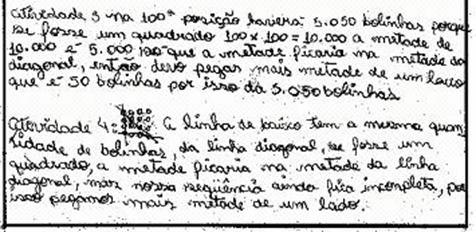 Atividade 3 na 100ª posição haverá 5.050 bolinhas porque
se fosse um quadrado 100 x 100 = 10.000 a metade de
10.000 é 5.000 que a metade ficaria na metade da
diagonal, então devo pegar mais metade de um lado
que é 50 bolinhas por isso dá 5.050 bolinhas
Atividade 4: A linha de baixo tem a mesma quan
tidade de bolinhas, da linha diagonal, se fosse um
quadrado, a metade ficaria na metade da linha
diagonal, mas nossa seqüência ainda fica incompleta, por
isso pegamos mais metade de um lado.